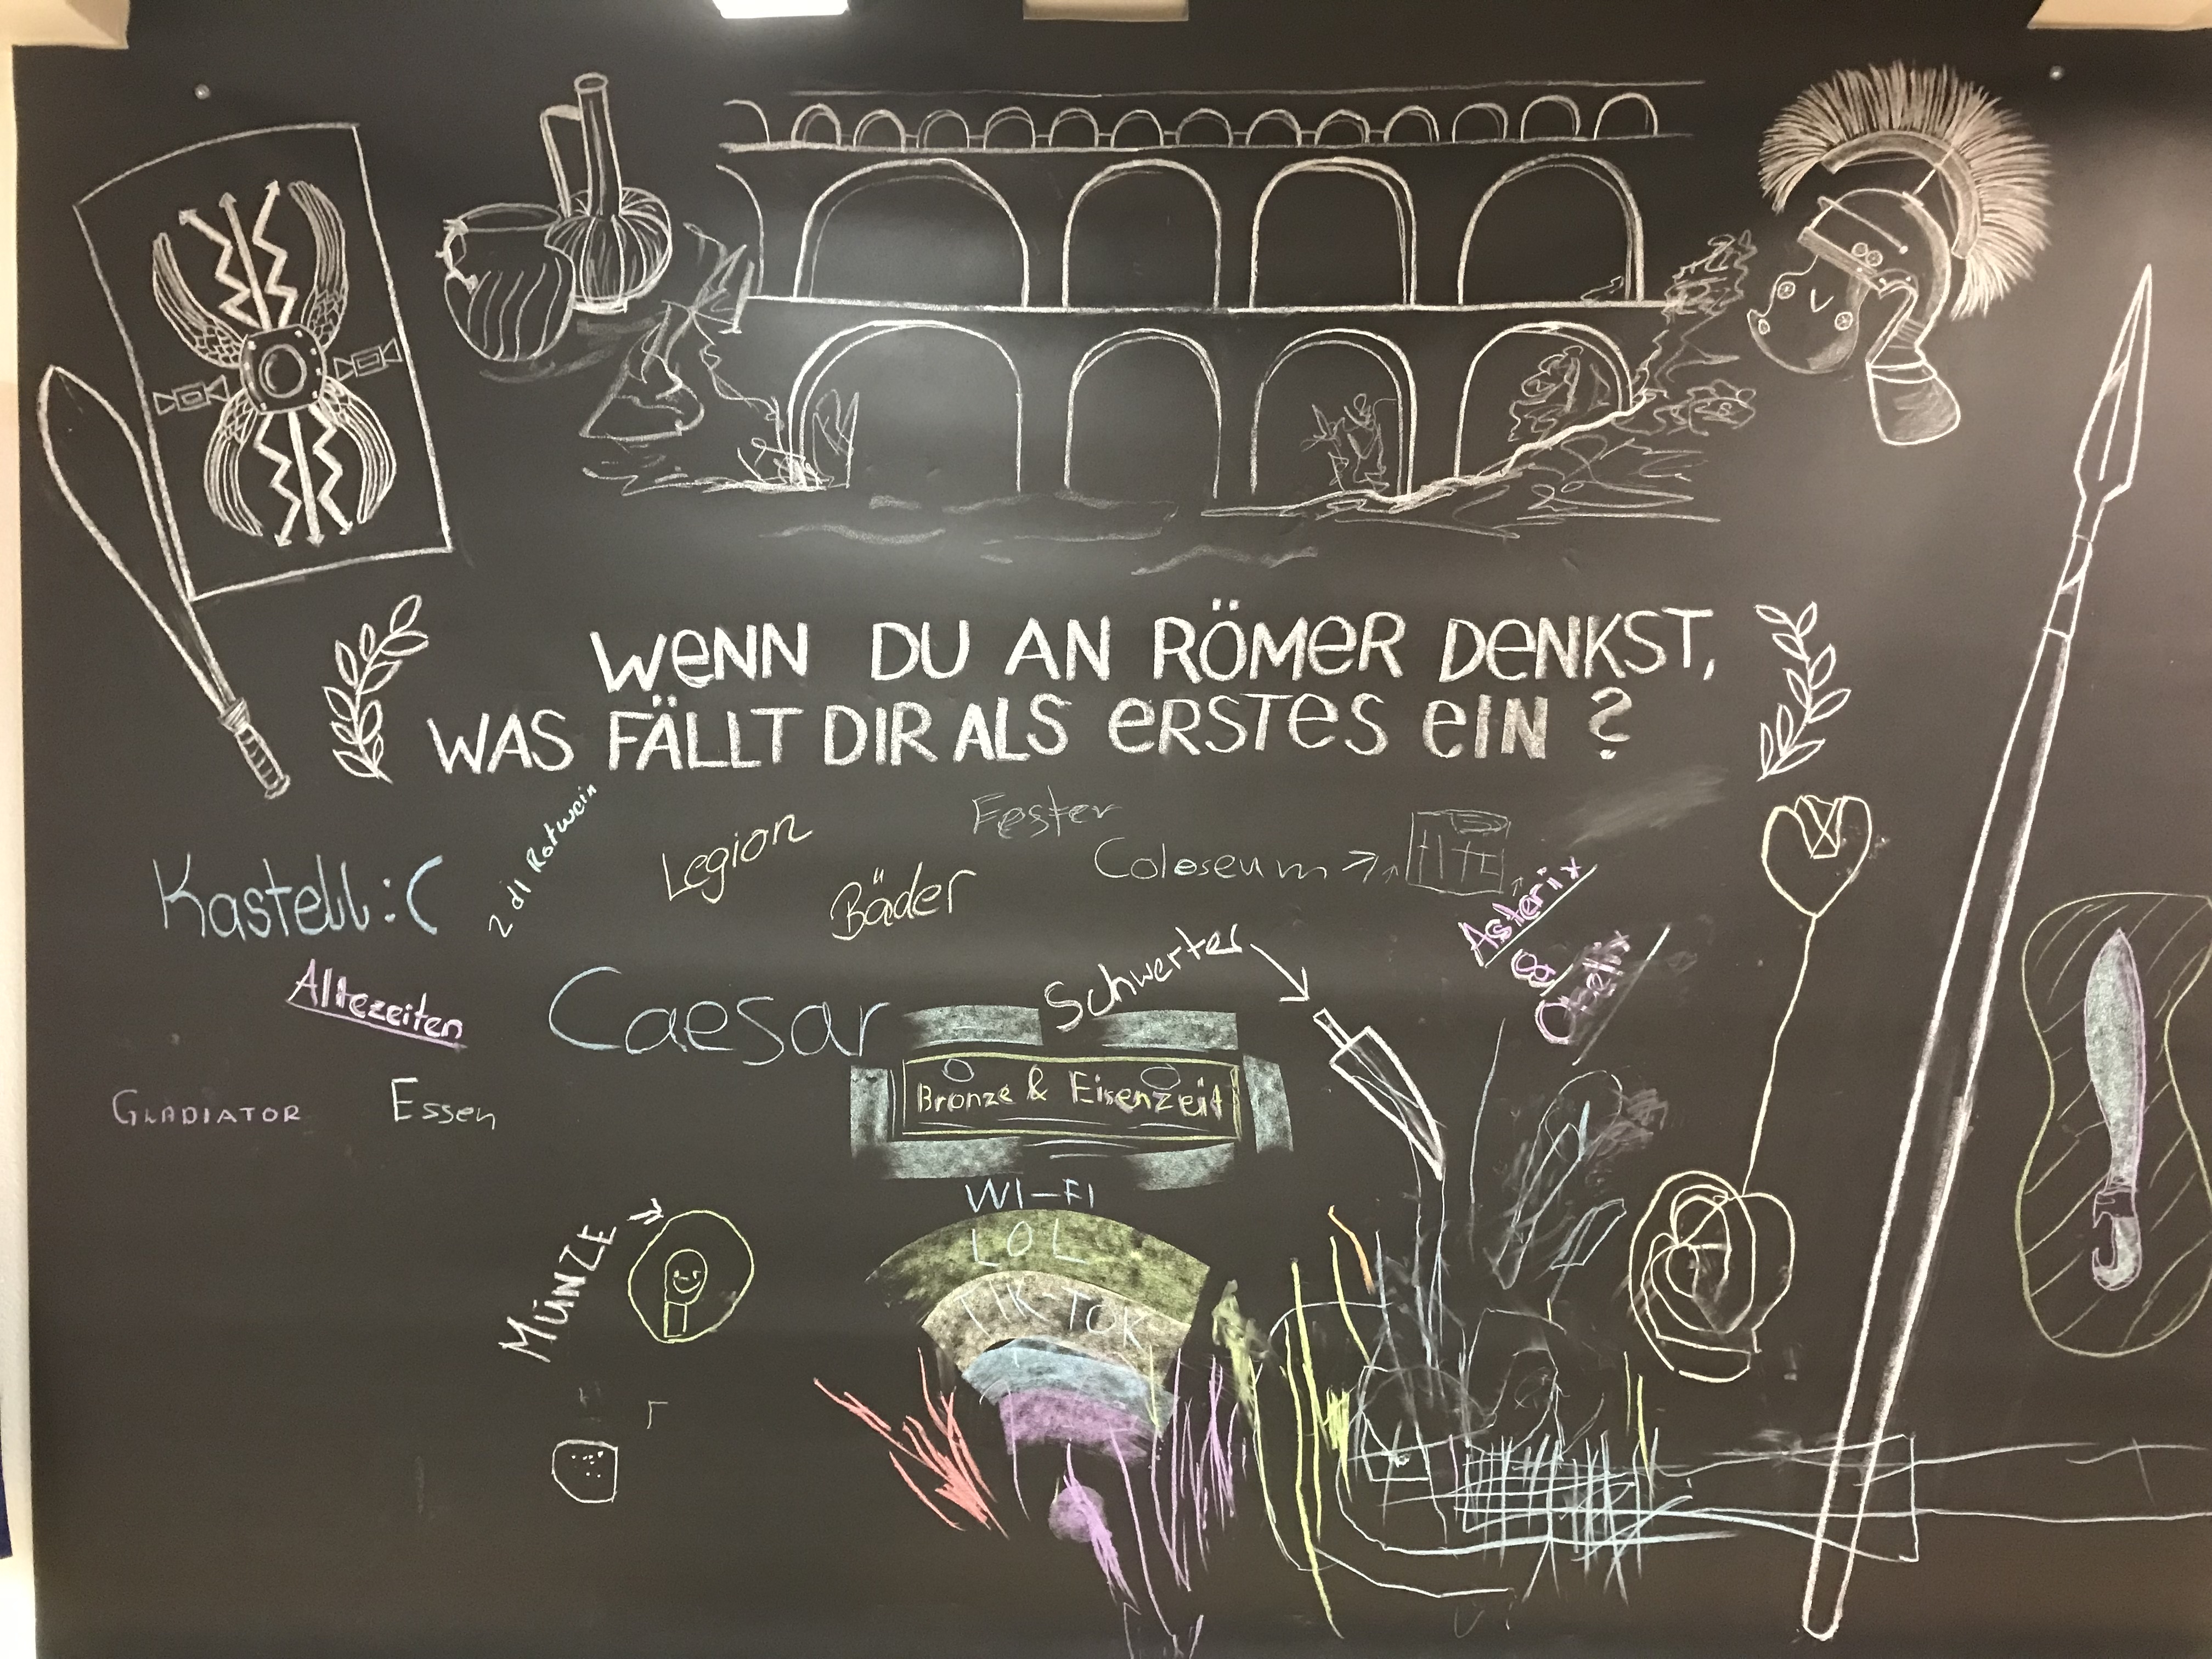 WENN DU AN RÖMER DENKST,
WAS FÄLLT DIR ALS ERSTES EIN ?
2 dl Rotwein
Legion
Fester
Kastell :(
Bäder
Coloseum
Asterix
&
Obelix
Altezeiten
Caesar
Schwerter
GLADIATOR
Essen
Bronze & Eisenzeit
WI-FI
LOL
TIK-TOK
MÜNZE